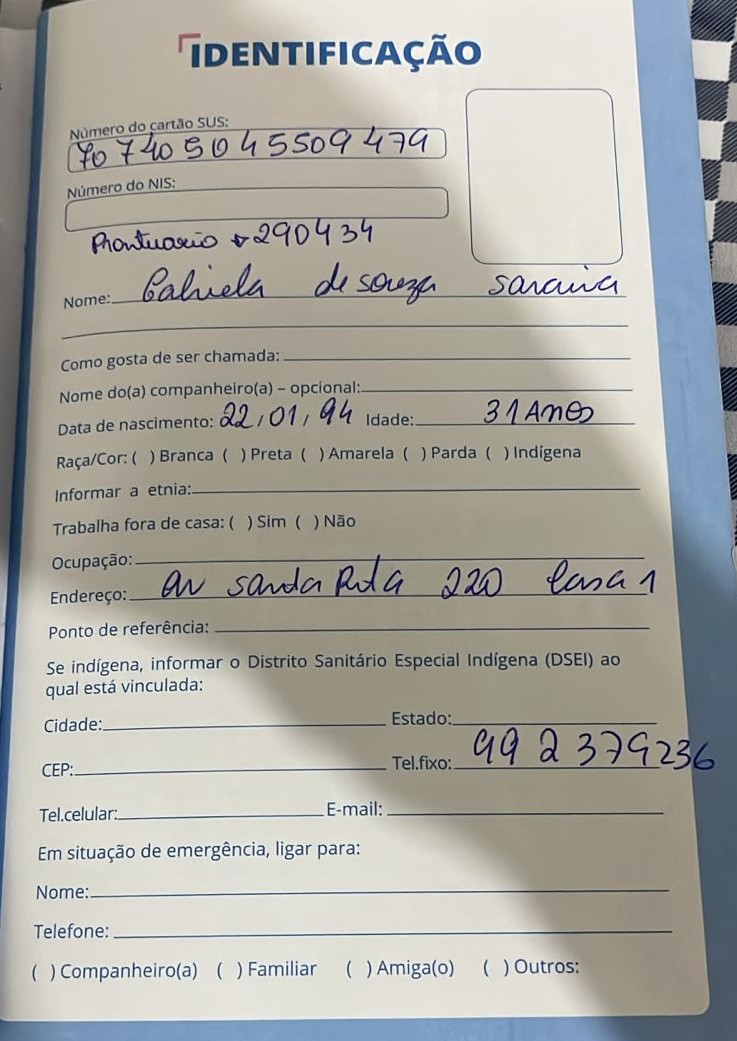 IDENTIFICAÇÃO
Número do cartão SUS:
70 7405 045509 479
Número do NIS:
Prontuario 290434
Nome: Gabriela de souza saraiva
Como gosta de ser chamada:
Nome do(a) companheiro(a) – opcional:
Data de nascimento: 22/01/94 Idade: 31 Anos
Raça/Cor: ( ) Branca ( ) Preta ( ) Amarela ( ) Parda ( ) Indígena
Informar a etnia:
Trabalha fora de casa: ( ) Sim ( ) Não
Ocupação:
Endereço: av santa Rita 220 casa 1
Ponto de referência:
Se indígena, informar o Distrito Sanitário Especial Indígena (DSEI) ao
qual está vinculada:
Cidade: Estado:
CEP: Tel.fixo: 992379236
Tel.celular: E-mail:
Em situação de emergência, ligar para:
Nome:
Telefone:
( ) Companheiro(a) ( ) Familiar ( ) Amiga(o) ( ) Outros: